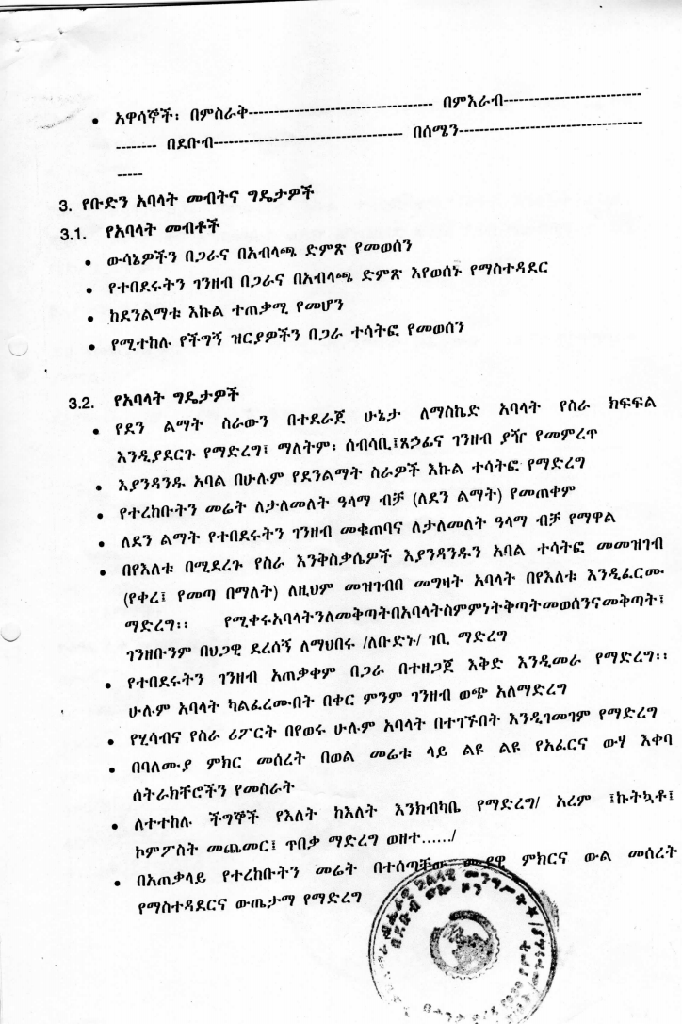 • አዋሳኞች፡ በምስራቅ------------------------------------ በምእራብ---------------------------
-------- በደቡብ------------------------------------- በሰሜን------------------------------------
-----
3. የቡድን አባላት መብትና ግዴታዎች
3.1. የአባላት መብቶች
• ውሳኔዎችን በጋራና በአብላጫ ድምጽ የመወሰን
• የተበደሩትን ገንዘብ በጋራና በአብላጫ ድምጽ እየወሰኑ የማስተዳደር
• ከደንልማቱ እኩል ተጠቃሚ የመሆን
• የሚተከሉ የችግኝ ዝርያዎችን በጋራ ተሳትፎ የመወሰን
3.2. የአባላት ግዴታዎች
• የደን ልማት ስራውን በተደራጀ ሁኔታ ለማስኬድ አባላት የስራ ክፍፍል
እንዲያደርጉ የማድረግ፣ ማለትም፡ ሰብሳቢ፤ጸኃፊና ገንዘብ ያዥ የመምረጥ
• እያንዳንዱ አባል በሁሉም የደንልማት ስራዎች እኩል ተሳትፎ የማድረግ
• የተረከቡትን መሬት ለታለመለት ዓላማ ብቻ (ለደን ልማት) የመጠቀም
• ለደን ልማት የተበደሩትን ገንዘብ መቁጠባና ለታለመለት ዓላማ ብቻ የማዋል
• በየእለቱ በሚደረጉ የስራ እንቅስቃሴዎች እያንዳንዱን አባል ተሳትፎ መመዝገብ
(የቀረ፤ የመጣ በማለት) ለዚህም መዝገብበ መግዛት አባላት በየእለቱ እንዲፈርሙ
ማድረግ፡፡ የሚቀሩአባላትንለመቅጣትበአባላትስምምነትቅጣትመወሰንናመቅጣት፤
ገንዘቡንም በህጋዊ ደረሰኝ ለማህበሩ /ለቡድኑ/ ገቢ ማድረግ
• የተበደሩትን ገንዘብ አጠቃቀም በጋራ በተዘጋጀ እቅድ እንዲመራ የማድረግ፡፡
ሁሉም አባላት ካልፈረሙበት በቀር ምንም ገንዘብ ወጭ አለማድረግ
• የሂሳብና የስራ ሪፖርት በየወሩ ሁሉም አባላት በተገኙበት እንዲገመገም የማድረግ
• በባለሙያ ምክር መሰረት በወል መሬቱ ላይ ልዩ ልዩ የአፈርና ውሃ እቀባ
ሰትራክቸሮችን የመስራት
• ለተተከሉ ችግኞች የእለት ከእለት እንክብካቤ የማድረግ/ አረም ፤ኩትኳቶ፤
ኮምፖስት መጨመር፤ ጥበቃ ማድረግ ወዘተ....../
• በአጠቃላይ የተረከቡትን መሬት በተሰጣቸው ሙያዊ ምክርና ውል መሰረት
የማስተዳደርና ውጤታማ የማድረግ